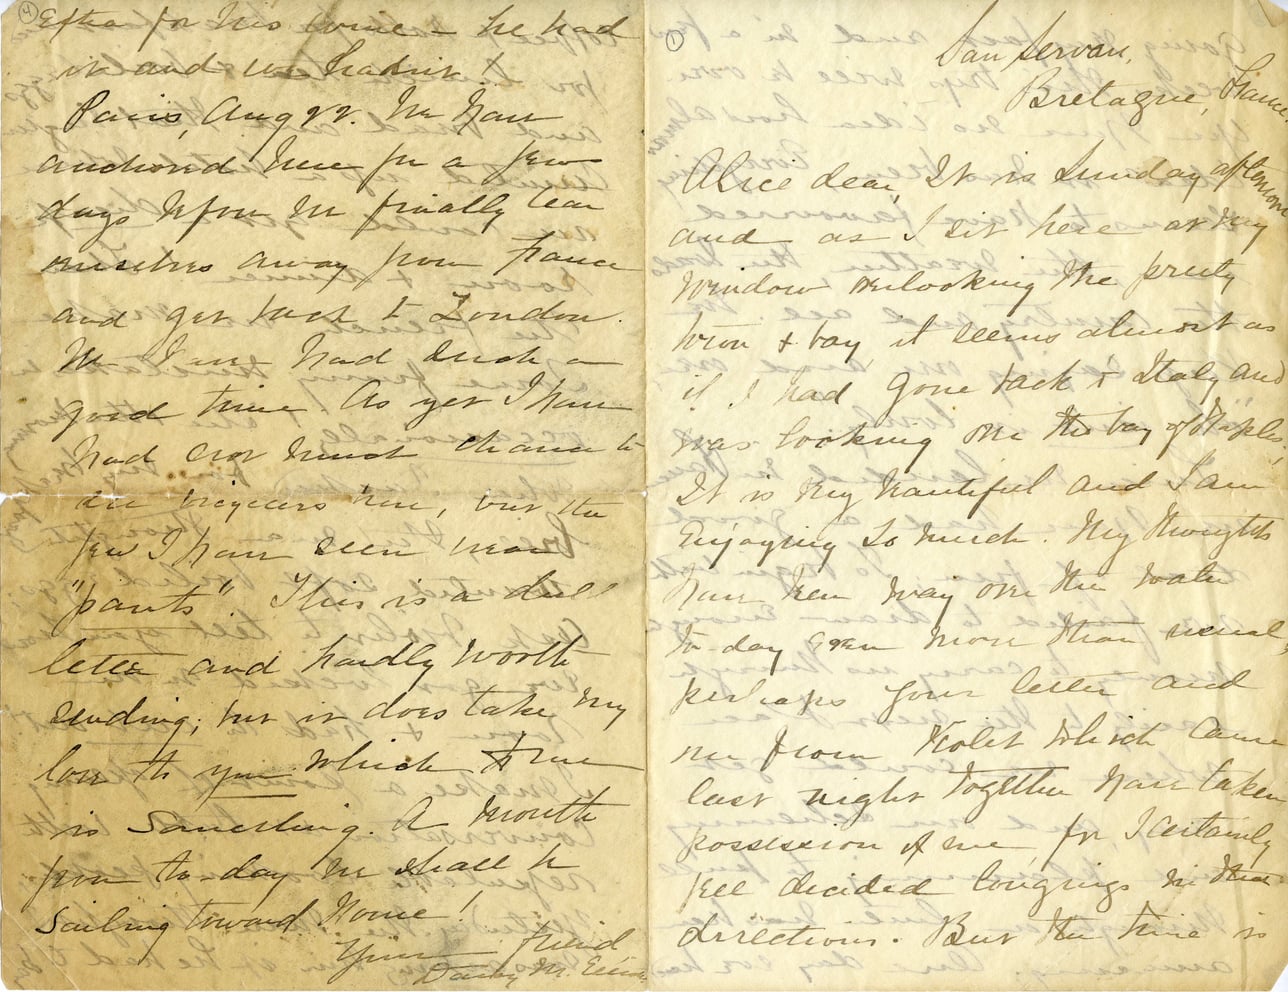 4
Extra for his wine - he had
it and we hadn't!
Paris, Aug 22. We have
anchored here for a few
days before we finally tear
ourselves away from France
and get back to London.
We have had such a
good time. As yet I have
had not much chance to
see bicyclers here, but the
few I have seen wear
"pants". This is a dull
letter and hardly worth
sending, but it does take my
love to you which
is something. A month
from to-day we shall be
sailing toward home!
Your friend
1
San Servan,
Bretagne, France
Alice dear, It is Sunday afternoon
and as I sit here at my
window overlooking the pretty
town & bay, it seems almost as
if I had gone back to Italy and
was looking on the bay of Naples.
It is very beautiful and I am
Enjoying so much. My thoughts
have been way over the water
to-day even more than usual,
perhaps your letter and
one from Violet which came
last night together have taken
possession of me, for I certainly
feel decided longings in that
directions. But the time is